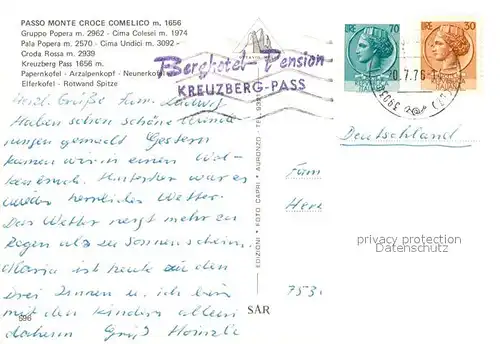 PASSO MONTE CROCE COMELICO m. 1656
Gruppo Popera m. 2962 - Cima Colesei m. 1974
Pala Popera m. 2570 - Cima Undici m. 3092 -
Croda Rossa m. 2939
Kreuzberg Pass 1656 m.
Papernkofel - Arzalpenkopf - Neunerkofel
Elferkofel - Rotwand Spitze
Berghotel - Pension
KREUZBERG-PASS
LIRE 70
LIRE 30
0.7.76
Herzl. Grüße Fam. Ludwig
Haben schon schöne Wande
rungen gemacht Gestern
kamen wir in einen Wol-
kenbruch. Hinterher war es
wieder herrliches Wetter.
Das Wetter neigt mehr zu
Regen als zu Sonnenschein.
Maria ist heute zu den
Drei Zinnen u. ich bin
mit den Kindern allein
daheim Gruß Heinzle
Deutschland
Fam
Herr
753
EDIZIONI - FOTO CAPRI - AURONZO - TEL.
SAR
596
privacy protection
Datenschutz